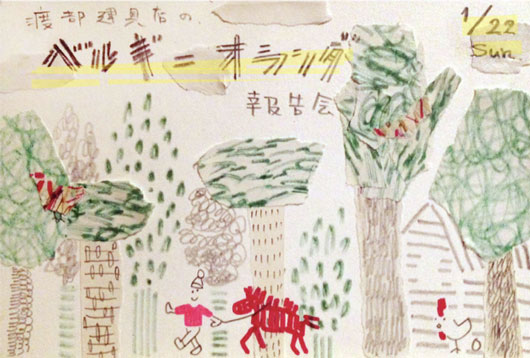 渡部建具店の
ベルギー オランダ
報告会
1/22
Sun.